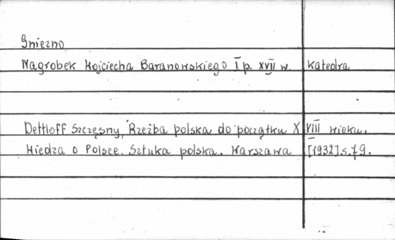 Gniezno
Nagrobek Wojciecha Baranowskiego I p. XVII w. katedra
Dettloff Szczęsny, Rzeźba polska do początku XVIII wieku.
Wiedza o Polsce. Sztuka polska. Warszawa [1932] s. 79.